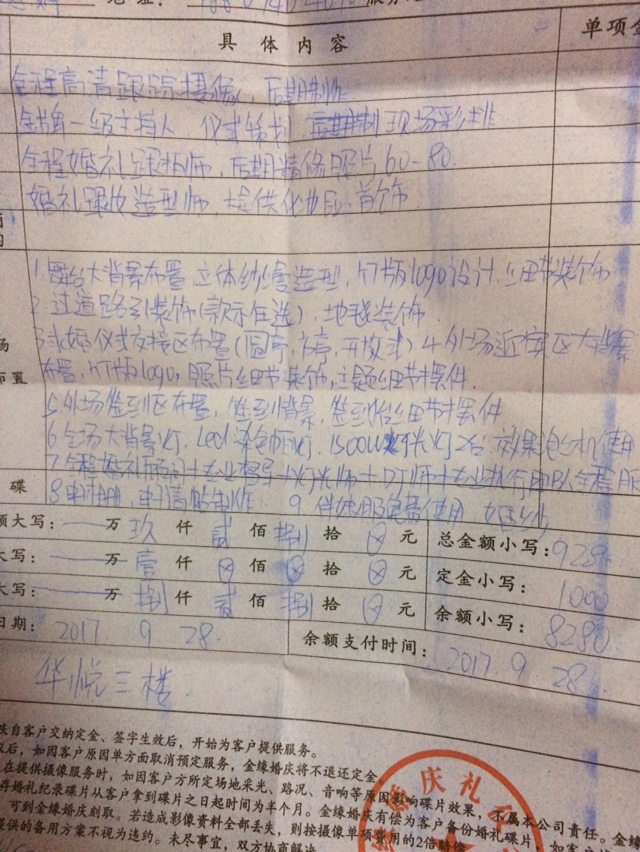 具体内容 单项金
全程高清跟踪摄像，后期制作
金牌一级主持人 仪式策划 现场彩排
全程婚礼跟拍师，后期精修照片60-80
婚礼跟妆造型师 提供化妆品、首饰
1 舞台大背景布置 立体纱幔造型，KT版logo设计，细节装饰
2 过道路引装饰(款示任选)，地毯装饰
3 求婚仪式交接区布置(圆亭，方亭，开放式) 4 外场迎宾区大背景
布置，KT版logo，照片细节装饰，主题细节摆件
布置
5 外场签到区布置，签到背景，签到台细节摆件
6 全场大背景灯，Led 染色灯，1500W 灯2台，效果 机使用
7 全程婚礼顾问+专业督导+灯光师+DJ师+专业执行团队全程服
碟
8 电子相册，电子请帖制作 9 伴娘服免费使用
额大写：万 玖 仟 贰 佰 捌 拾 元 总金额小写：928
大写：万 壹 仟 佰 拾 元 定金小写：1000
大写：万 捌 仟 贰 佰 捌 拾 元 余额小写：8280
日期：2017 9 28. 余额支付时间：2017.9.28.
华悦三楼
自客户交纳定金、签字生效后，开始为客户提供服务。
后，如因客户原因单方面取消预定服务，金缘婚庆将不退还定金。
在提供摄像服务时，如因客方所定场地采光、路况、音响等原因影响碟片效果，不属本公司责任。金缘
存婚礼纪录碟片从客户拿到碟片之日起时间为半个月。金缘婚庆有偿为客户备份婚礼碟片，如客户
，可到金缘婚庆刻取。若造成影像资料全部丢失，则按摄像单项费用的2倍赔偿
提供的备用方案不视为违约。未尽事宜，双方协商解决
庆礼